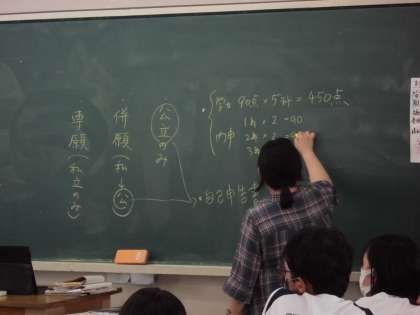 公立のみ
併願(私と公)
専願(私立のみ)
学力 90点×5科=450点
内申
1年 × 2 = 90
2年 × 2
3年
自己申告書